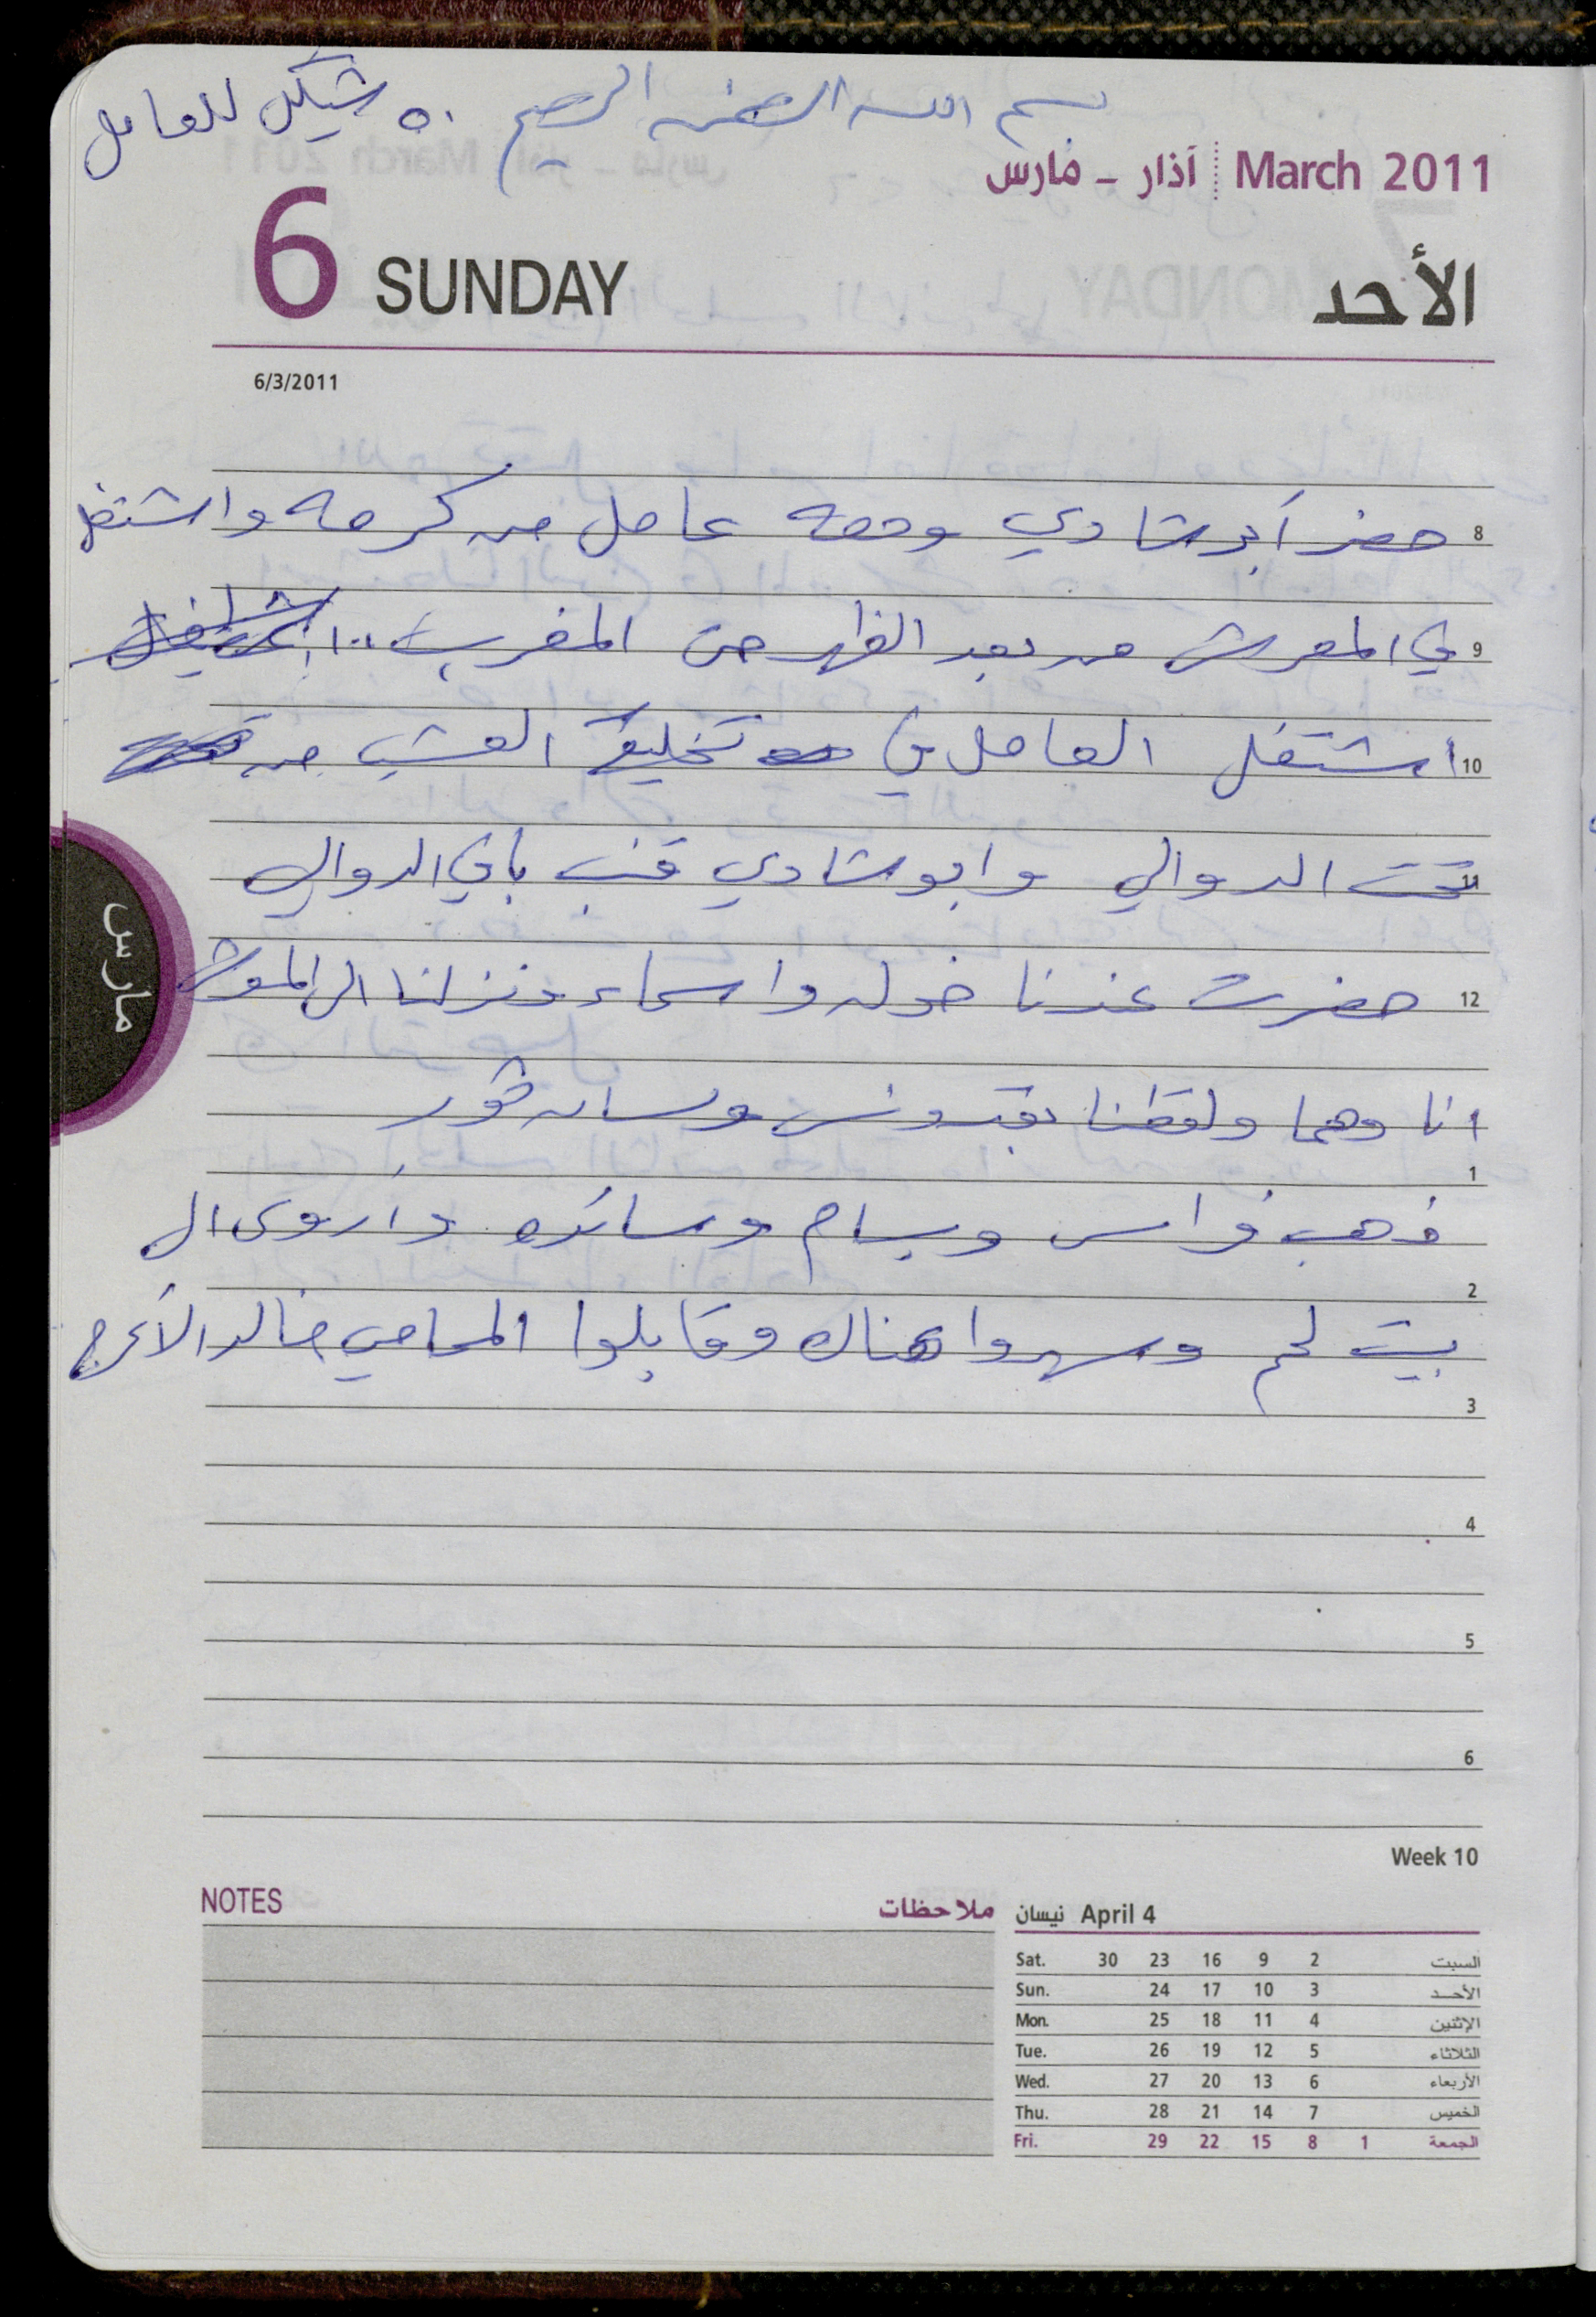 بسم الله الرحمن الرحيم ٥٠ شيكل للعامل
March 2011 آذار - مارس
6 SUNDAY الأحد
6/3/2011
8 حضر أبو شادي ومعه عامل من كرمه واشتغل
9 في المعرش من بعد الظهر حتى المغرب
10 اشتغل العامل في تخليق العشب من
11 تحت الدوالي وابو شادي قنب باقي الدوالي
12 حضرت عندنا خوله واسماء ونزلنا الى المعرش
انا وهما ولقطنا بقدونس ولسان ثور
1
ذهب فراس وبسام وسائده وأروى الى
2
بيت لحم وسهروا هناك وقابلوا المحامي خالد الأعرج
3
4
5
6
مارس
Week 10
NOTES ملاحظات
نيسان April 4
Sat. 30 23 16 9 2 السبت
Sun. 24 17 10 3 الأحد
Mon. 25 18 11 4 الإثنين
Tue. 26 19 12 5 الثلاثاء
Wed. 27 20 13 6 الأربعاء
Thu. 28 21 14 7 الخميس
Fri. 29 22 15 8 1 الجمعة